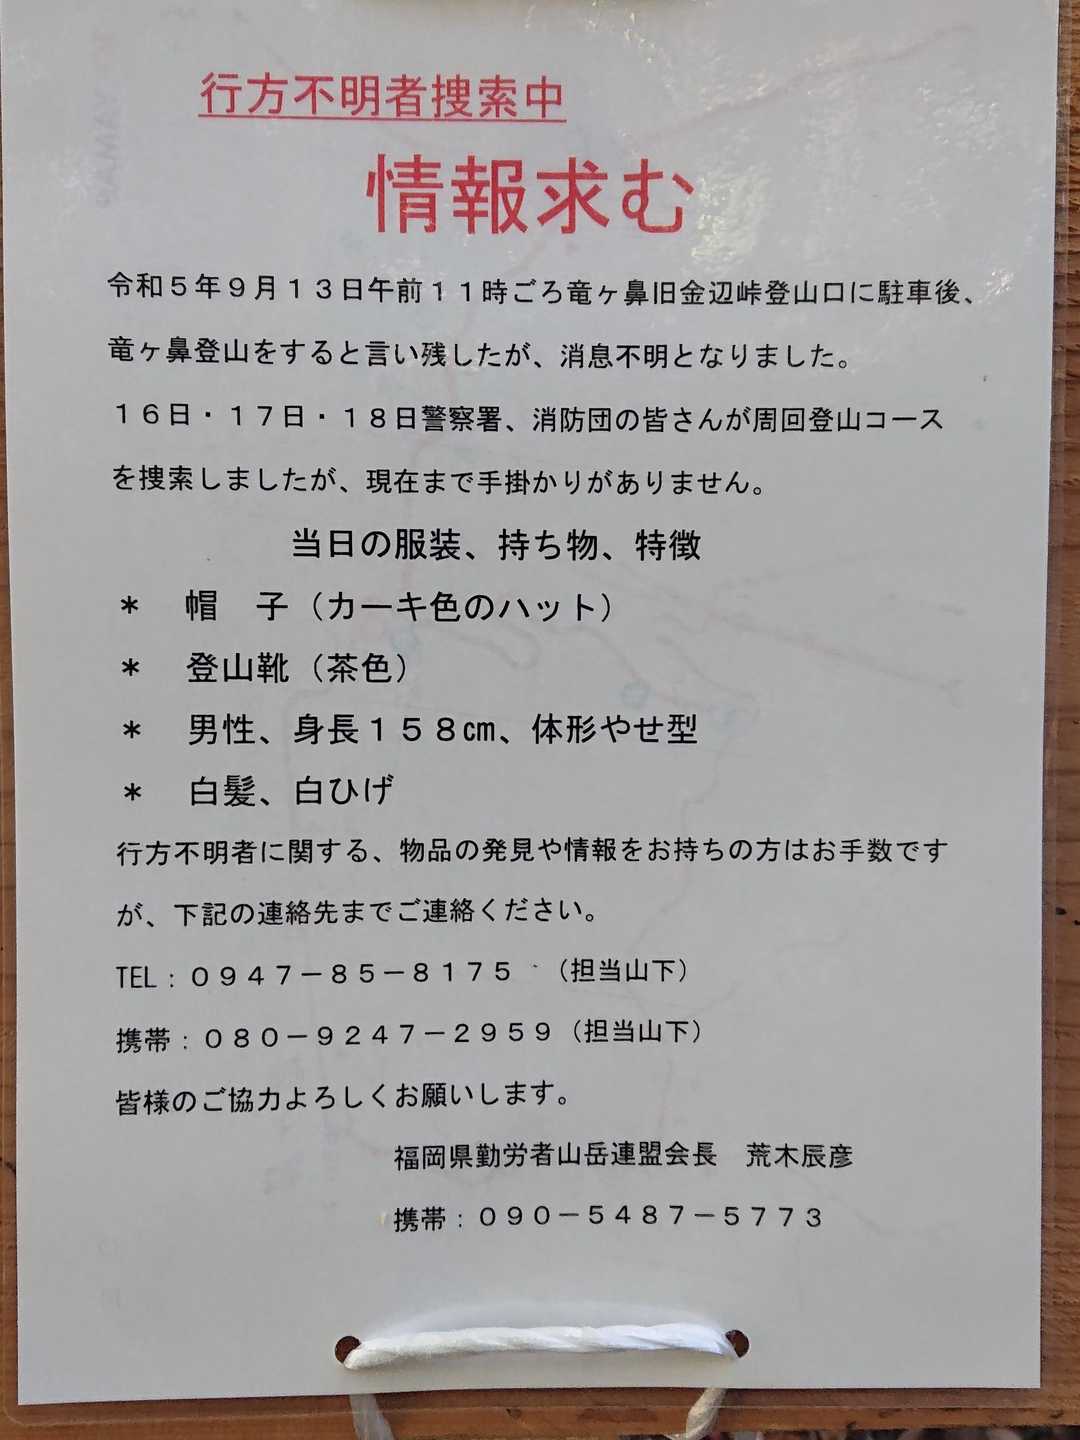 行方不明者捜索中
情報求む
令和５年９月１３日午前１１時ごろ竜ヶ鼻旧金辺峠登山口に駐車後、
竜ヶ鼻登山をすると言い残したが、消息不明となりました。
１６日・１７日・１８日警察署、消防団の皆さんが周回登山コース
を捜索しましたが、現在まで手掛かりがありません。
当日の服装、持ち物、特徴
＊　帽　子（カーキ色のハット）
＊　登山靴（茶色）
＊　男性、身長１５８㎝、体形やせ型
＊　白髪、白ひげ
行方不明者に関する、物品の発見や情報をお持ちの方はお手数です
が、下記の連絡先までご連絡ください。
TEL：０９４７－８５－８１７５　（担当山下）
携帯：０８０－９２４７－２９５９（担当山下）
皆様のご協力よろしくお願いします。
福岡県勤労者山岳連盟会長　荒木辰彦
携帯：０９０－５４８７－５７７３